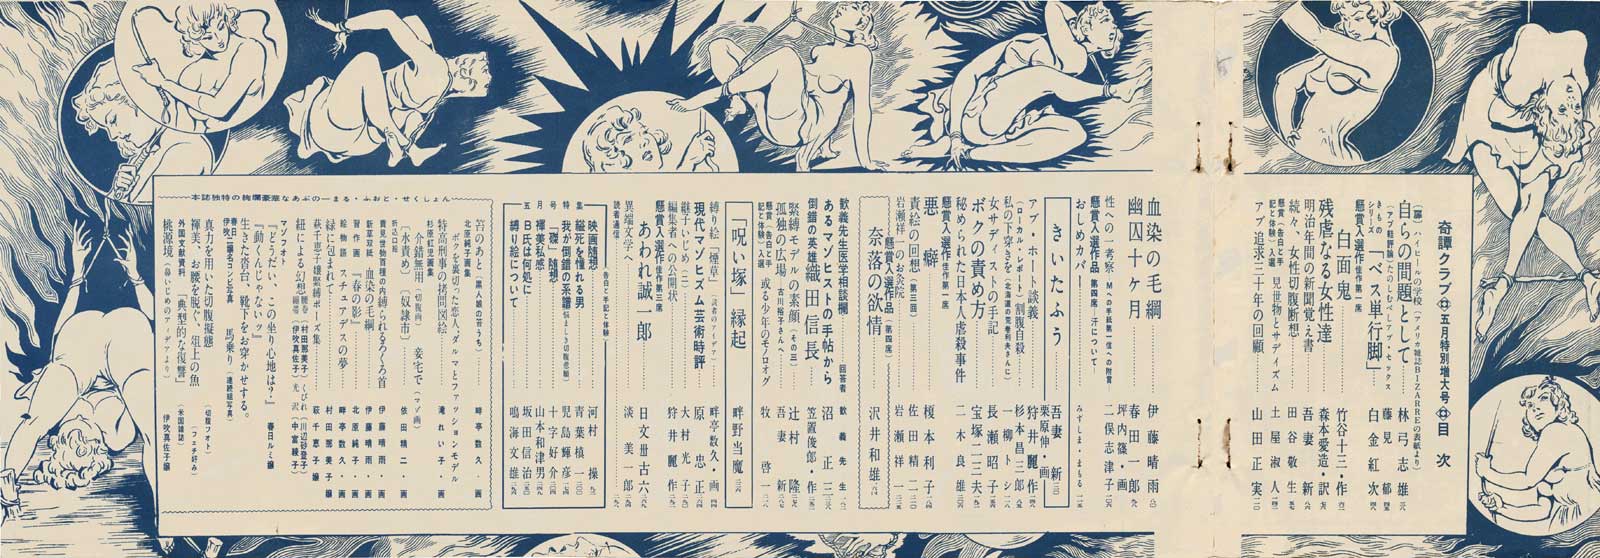 奇譚クラブ 五月特別増大号 目次
(扉)ハイヒールの学校(アメリカ雑誌BIZARREの表紙より)
自らの問題として 林弓志雄
(アブ軽評論)たのしむべしアブ・セックス 藤見郁
きもの シリーズ 「ベス単行脚」 白金紅次
懸賞入選作品 佳作第一席
白面鬼 竹谷十三・作
残虐なる女性達 森本愛造・訳
明治年間の新聞覚え書 吾妻新
続々、女性切腹断想 田谷敬生
懸賞(告白と手記と体験)入選 見世物とサディズム 土屋淑人
アブ追求三十年の回顧 山田正実
血染の毛綱 伊藤晴雨
幽囚十ヶ月 春田一郎
坪内篠・画
性への一考察・Mへの手紙第一信への附言 二俣志津子
懸賞入選作品 第四席 ―汗について―
おしめカバー みずしま・まもる
きいたふう 吾妻新
栗原伸・画
アブ・ホート談義 狩井麗作
(ローカル・レポート)割腹自殺(北海道の荒巻利夫さんに) 杉本昌三郎
私の下穿きを 一柳トシ
女サディストの手記 長瀬昭子
ボクの責め方 宝塚一二夫
秘められた日本人虐殺事件 二木良雄
懸賞入選作品 佳作第一席
悪癖 榎本利子
責絵の回想(第三回) 佐田精二
岩瀬祥一のお灸院 岩瀬祥一
懸賞入選作品(第四席)
奈落の欲情 沢井和雄
歓義先生医学相談欄 回答者 歓義先生
あるマゾヒストの手帖から 沼正三
倒錯の英雄 織田信長 笠置俊郎・作
緊縛モデルの素顔(その三) 辻村隆
古川裕子さんへ 吾妻新
孤独の広場 或る少年のモノローグ 牧啓一
懸賞(告白と手記と体験)入選
「呪い塚」縁起 畔野当魔
縛り絵「煙草」(読者のアイデア) 畔亭数久・画
現代マゾヒズム芸術時評 原忠正
継子いじめ 大村光子
編集者への公開状 狩井麗作
懸賞入選作品 佳作第三席
あわれ誠一郎 日文卅古六
異端文学へ 淡美一郎
読者通信
五月号特集 告白と手記と体験
映画随想 河村操
縊死を憧れる男 青葉慎一
我が倒錯の系譜 悩ましき切腹悲願 児島輝彦
「蝶」随想 十字好介
褌美私感 山本和津男
B氏は何処に 坂田信治
縛り絵について 鳴海文雄
本誌特独の絢爛豪華なあぶのーまる・ふおと・せくしょん
笞のあと(黒人娘の笞うち) 畔亭数久・画
北原純子画集
ボクを裏切った恋人・ダルマとファッションモデル
特高刑事の拷問図絵 滝れい子・画
杉原虹児画集
介錯無用(切腹画) 妾宅で(マゾ画)
(水責め) (奴隷市) 依田精二・画
折込口絵
責問世物百種の内 縛られるろくろ首 伊藤晴雨・画
新草双紙 血染の毛綱 伊藤晴雨・画
習作画 『春の影』 北原純子・画
絵物語 スチュアデスの夢 畔亭数久・画
縁に包まれて 村田那美子嬢
萩千恵子嬢緊縛ポーズ集 萩千恵子嬢
紐による幻想 腰巻(村田那美子) くびれ(川辺砂登子)
繃帯(伊吹真佐子) 光沢(中富綾子)
マゾフオト
『いけない、この坐り心地は?』 春日ルミ嬢
『動くんじゃないッ』
生きた沓台、靴下をお穿かせする。
春日・伊吹二嬢名コンビ写真 馬乗り(連続組写真)
真刀を用いた切腹擬態 (切腹フオト)
褌美、お腰を脱ぐ、俎上の魚 (フェチ好み)
外国文献資料 「典型的な復讐」 (米国雑誌)
桃源境(鼻いじめのアイデアより) 伊吹真佐子嬢